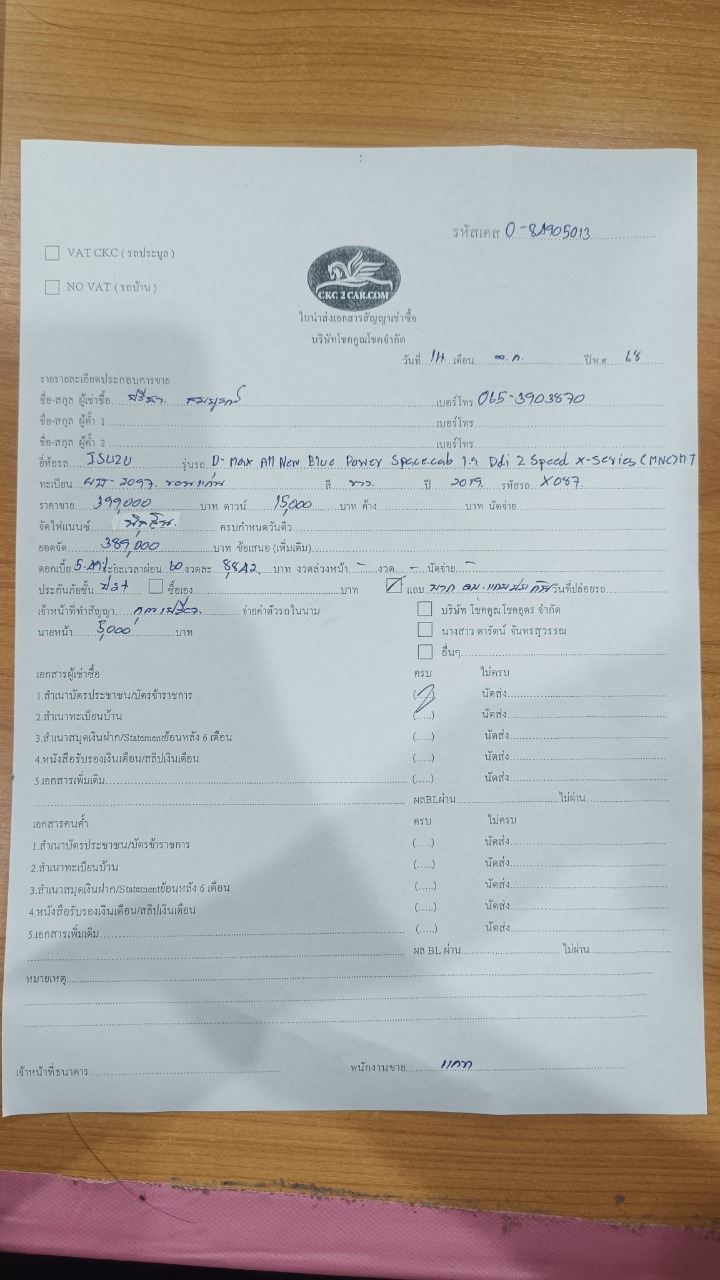 รหัสเคส 0-8A905013
VAT CKC ( รถประมูล )
NO VAT ( รถบ้าน )
CKC 2 CAR.COM
ใบนำส่งเอกสารสัญญาเช่าซื้อ
บริษัทโชคคูณโชคจำกัด
วันที่ 14 เดือน ปีพ.ศ 68
รายรายละเอียดประกอบการขาย
ชื่อ-สกุล ผู้เช่าซื้อ ปรีชา สมบูรณ์ เบอร์โทร 065-3903870
ชื่อ-สกุล ผู้ค้ำ 1 เบอร์โทร
ชื่อ-สกุล ผู้ค้ำ 2 เบอร์โทร
ยี่ห้อรถ ISUZU รุ่นรถ D-max All New Blue Power Spacecab 1.9 Ddi Z Speed X-Series (MNC) MT
ทะเบียน 2097 ขอนแก่น สี ขาว ปี 2019 รหัสรถ X087
ราคาขาย 399,000 บาท ดาวน์ 15,000 บาท ค้าง บาท นัดจ่าย
จัดไฟแนนซ์ ครบกำหนดวันดิว
ยอดจัด 389,000 บาท ข้อเสนอ (เพิ่มเติม)
ดอกเบี้ย ระยะเวลาผ่อน 60 งวดละ 8,812 บาท งวดล่วงหน้า - งวด - นัดจ่าย -
ประกันภัยชั้น ป2+ ซื้อเอง บาท แถม วันที่ปล่อยรถ
เจ้าหน้าที่ทำสัญญา จ่ายค่าตัวรถในนาม
บริษัท โชคคูณโชคอุดร จำกัด
นายหน้า 5,000 บาท
นางสาว ดารัตน์ จันทรสุวรรณ
อื่นๆ
เอกสารผู้เช่าซื้อ ครบ ไม่ครบ
1.สำเนาบัตรประชาชน/บัตรข้าราชการ นัดส่ง
2.สำเนาทะเบียนบ้าน (.....) นัดส่ง
3.สำเนาสมุดเงินฝาก/Statementย้อนหลัง 6 เดือน (.....) นัดส่ง
4.หนังสือรับรองเงินเดือน/สลิปเงินเดือน (.....) นัดส่ง
5.เอกสารเพิ่มเติม (.....) นัดส่ง
ผลBLผ่าน ไม่ผ่าน
เอกสารคนค้ำ ครบ ไม่ครบ
1.สำเนาบัตรประชาชน/บัตรข้าราชการ (.....) นัดส่ง
2.สำเนาทะเบียนบ้าน (.....) นัดส่ง
3.สำเนาสมุดเงินฝาก/Statementย้อนหลัง 6 เดือน (.....) นัดส่ง
4.หนังสือรับรองเงินเดือน/สลิปเงินเดือน (.....) นัดส่ง
5.เอกสารเพิ่มเติม (.....) นัดส่ง
ผล BL ผ่าน ไม่ผ่าน
หมายเหตุ
เจ้าหน้าที่ธนาคาร พนักงานขาย